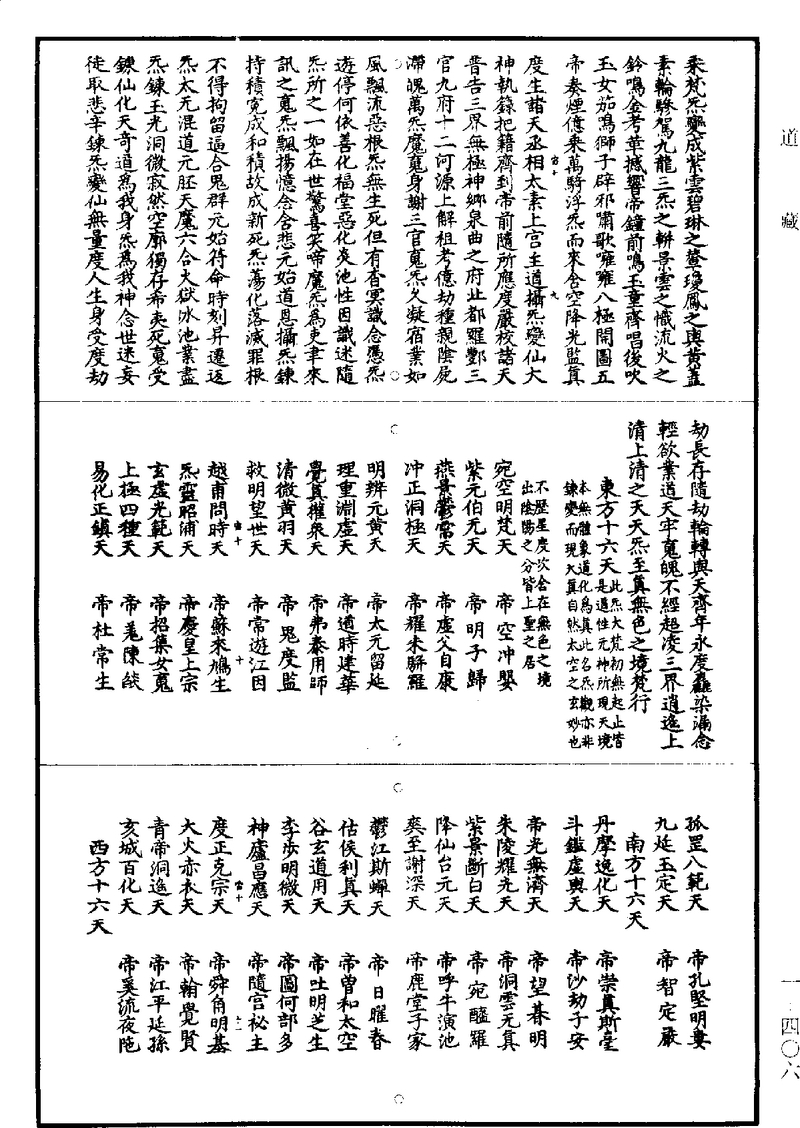 道藏
乘梵炁變成紫雲碧琳之輦瓊鳳之輿黃蓋
素輪驂駕九龍三炁之輧景雲之幟流火之
鈴鳴金考華撼響帝鐘前鳴玉童齊唱後吹
玉女笳鳴獅子辟邪嘯歌嗈嗈八極開圖五
帝奏煙億乘萬騎浮炁而來含空降光監真
度生諸天丞相太素上宮主道攝炁變仙大
神執籙把籍齊到帝前隨所應度嚴校諸天
普告三界無極神鄉泉曲之府北都羅酆三
官九府十二河源上解祖考億劫種親陰屍
滯魄萬炁魔䰟身謝三官䰟炁久凝宿業如
風飄流惡根炁無生死但有杳冥識念憑炁
遊停何依善化福堂惡化炎池性因識迷隨
炁所之一如在世驚喜笑啼魔炁為吏聿來
訊之䰟炁飄揚憶念含悲元始道恩攝炁鍊
持積寃成和積故成新死炁蕩化落滅罪根
不得拘留逼合鬼群元始符命時刻昇遷返
炁太元混道元胚天魔六合大獄冰池業盡
炁鍊玉光洞微寂然空廓獨存希夷死䰟受
鍊仙化天奇道為我身炁為我神念世迷妄
徒取悲辛鍊炁變仙無量度人生身受度劫
劫長存隨劫輪轉與天齊年永度麤染漏念
輕欲業道天牢䰟魄不經超凌三界逍遙上
清上清之天天炁至真無色之境梵行
東方十六天此炁大梵初無起止皆是道性元神所現天境
本無體象道化為真此名炁觀亦非鍊變而現大真自然太空之玄妙也
不歷星度次舍在無色之境
出陰陽之分皆上聖之居
宛空明梵天　帝空冲嬰
紫元伯元天　帝明子歸
燕景鬱甯天　帝虛父自康
冲正洞極天　帝耀未駢羅
明辨元黃天　帝太元留延
理重淵虛天　帝逎時建華
覺真權衆天　帝弗泰用師
清微黃羽天　帝鬼度監
救明望世天　帝常遊江因
越甫問時天　帝蘇來鳩生
炁靈昭浦天　帝慶皇上宗
玄虛光範天　帝招集女䰟
上極四種天　帝羌陳燄
易化正鎮天　帝杜常生
孤罡八範天　帝孔堅明婁
九炡玉定天　帝智定嚴
南方十六天
丹摩逸化天　帝崇真斯臺
斗鑑虛輿天　帝沙劫子安
帝光無濟天　帝望暮明
朱陵耀光天　帝洞雲无真
紫景斷白天　帝宛醯羅
降仙台元天　帝呼牛演池
奕至謝深天　帝鹿堂子家
鬱江斯蟬天　帝日曜春
估侯利真天　帝曽和太空
谷玄道用天　帝吐明芝生
李步明微天　帝圖何部多
神廬昌應天　帝隨宫祕主
度正克宗天　帝舜角明基
大火亦衣天　帝翰覺賢
青帝洞遙天　帝江平延孫
亥城百化天　帝奚流夜陁
西方十六天
一・四〇六